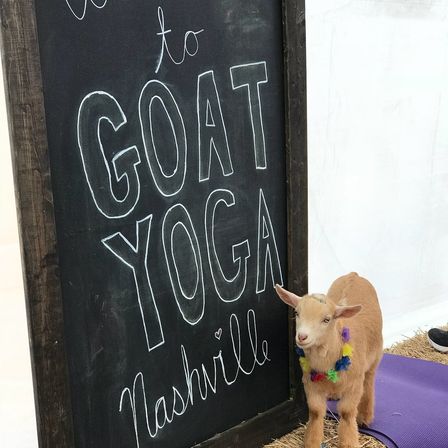 to
GOAT
YOGA
Nashville